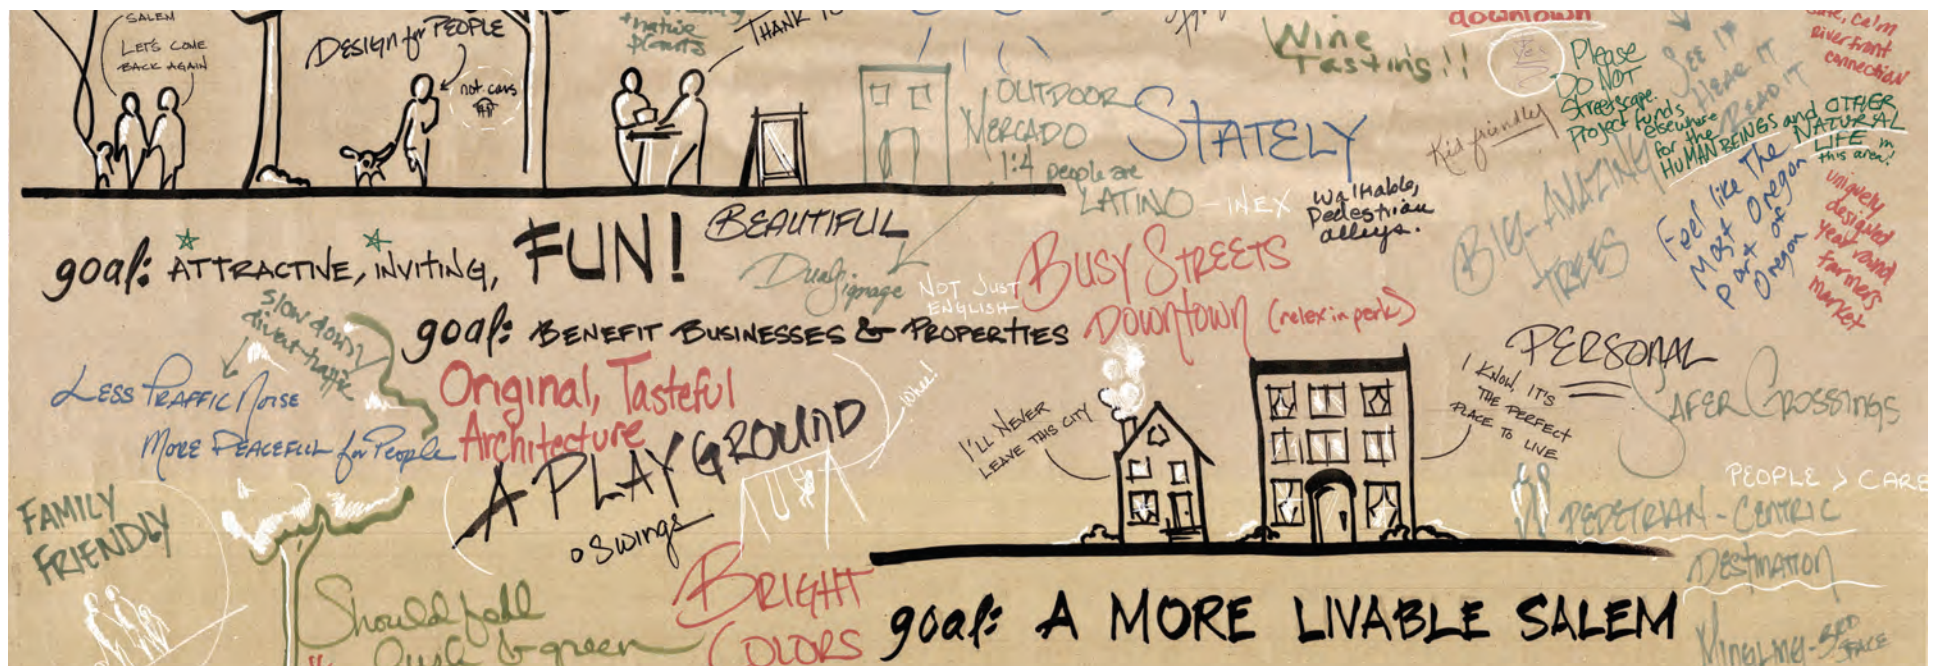 SALEM
LET'S COME
BACK AGAIN
DESIGN for PEOPLE
not cars
native
plants
THANK
OUTDOOR
MERCADO
1:4 people are
LATINO - INEX
STATELY
Wine
Tasting!!
downtown
Yes
Kid friendly
Walkable,
Pedestrian
alleys.
Please
DO NOT
Streetscape.
Project funds
elsewhere
for the
HUMAN BEINGS and OTHER
NATURAL
LIFE in
this area!
SEE IT
HEAR IT
READ IT
calm
riverfront
connection
BIG-AMAZING
TREES
Feel like The
Most Oregon
Part of
Oregon
uniquely
designed
year round
farmers
market
goal: ATTRACTIVE, INVITING, FUN!
BEAUTIFUL
Dual Signage
NOT JUST
ENGLISH
BUSY STREETS
DOWNTOWN (relex in perk)
goal: BENEFIT BUSINESSES & PROPERTIES
Slow down
divert traffic
LESS TRAFFIC NOISE
MORE PEACEFUL for People
Original, Tasteful
Architecture
A PLAYGROUND
o Swings
Whee!
I'LL NEVER
LEAVE THIS CITY
PERSONAL
I KNOW, IT'S
THE PERFECT
PLACE TO LIVE
SAFER CROSSINGS
PEOPLE > CARE
PEDETRIAN-CENTRIC
DESTINATION
MINGLING-3RD
SPACE
FAMILY
FRIENDLY
Should feel
lush & green
BRIGHT
COLORS
goal: A MORE LIVABLE SALEM